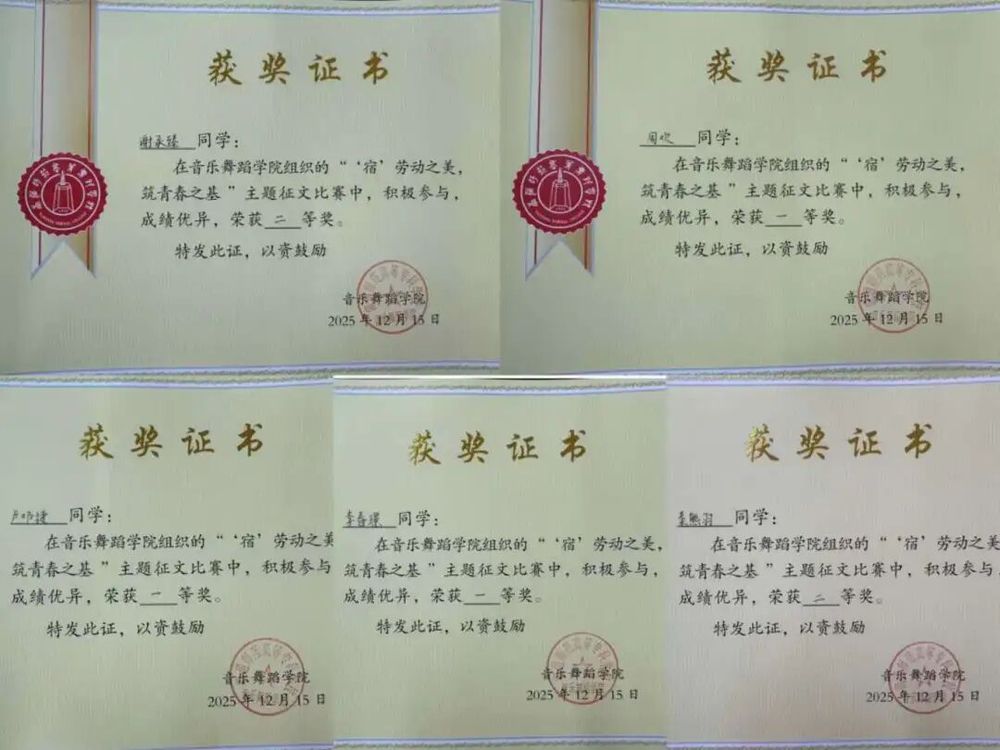 获奖证书
同学：
在音乐舞蹈学院组织的“‘宿’劳动之美，
筑青春之基”主题征文比赛中，积极参与，
成绩优异，荣获 二 等奖。
特发此证，以资鼓励
音乐舞蹈学院
2025 年 12 月 15 日
获奖证书
周欢 同学：
在音乐舞蹈学院组织的“‘宿’劳动之美，
筑青春之基”主题征文比赛中，积极参与，
成绩优异，荣获 一 等奖。
特发此证，以资鼓励
音乐舞蹈学院
2025 年 12 月 15 日
获奖证书
同学：
在音乐舞蹈学院组织的“‘宿’劳动之美
筑青春之基”主题征文比赛中，积极参与
成绩优异，荣获 一 等奖。
特发此证，以资鼓励
音乐舞蹈学院
2025 年 12 月 15 日
获奖证书
同学：
在音乐舞蹈学院组织的“‘宿’劳动之美，
筑青春之基”主题征文比赛中，积极参与，
成绩优异，荣获 一 等奖。
特发此证，以资鼓励
音乐舞蹈学院
2025 年 12 月 15 日
获奖证书
同学：
在音乐舞蹈学院组织的“‘宿’劳动之美
筑青春之基”主题征文比赛中，积极参与，
成绩优异，荣获 二 等奖。
特发此证，以资鼓励
音乐舞蹈学院
2025 年 12 月 15 日